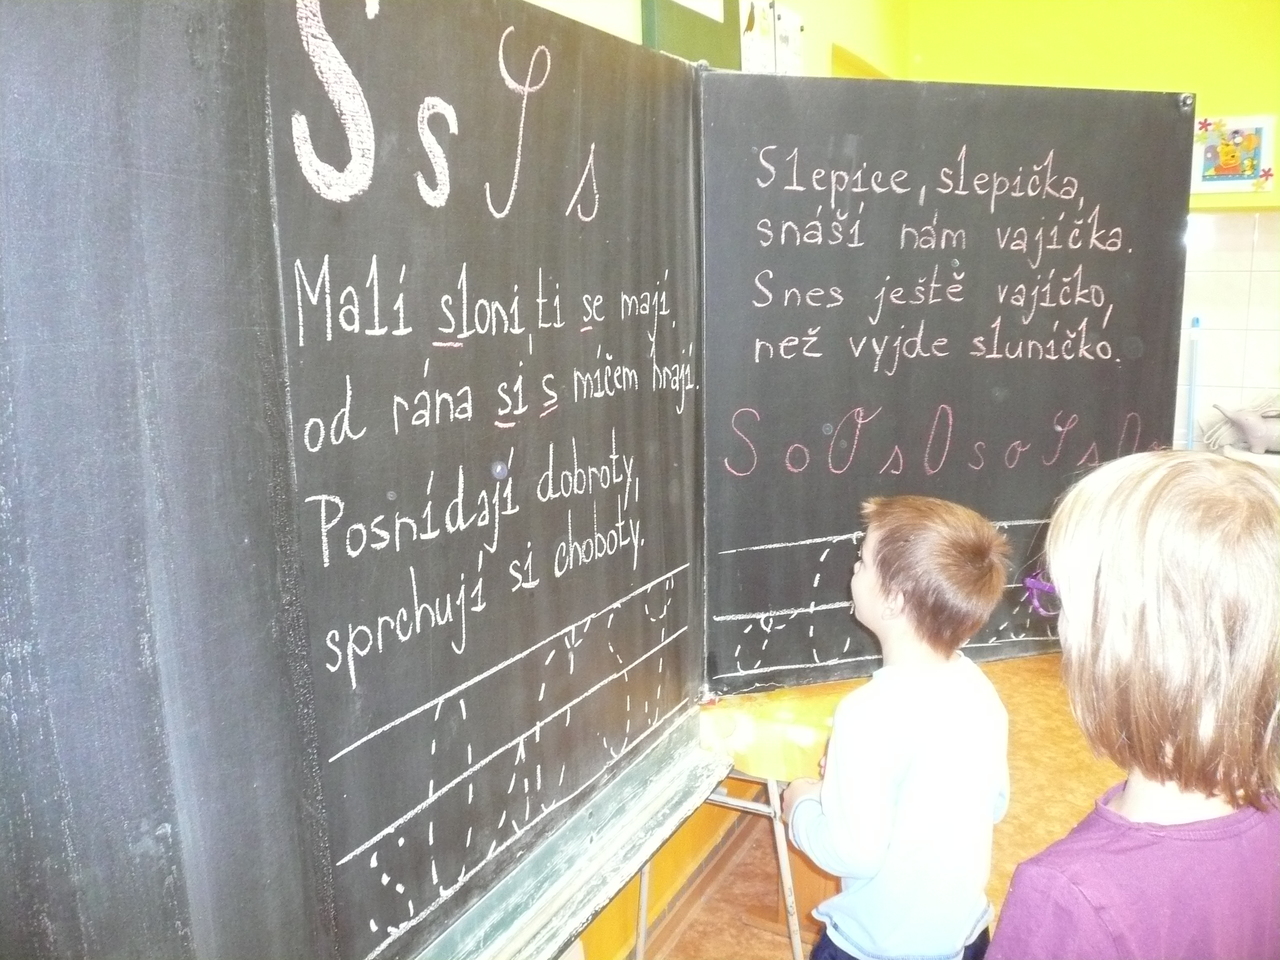 S s S s
Malí sloni, ti se mají,
od rána si s míčem hrají.
Posnídají dobroty,
sprchují si choboty.
Slepice, slepička,
snáší nám vajíčka.
Snes ještě vajíčko,
než vyjde sluníčko.
S o O s O s o S s O